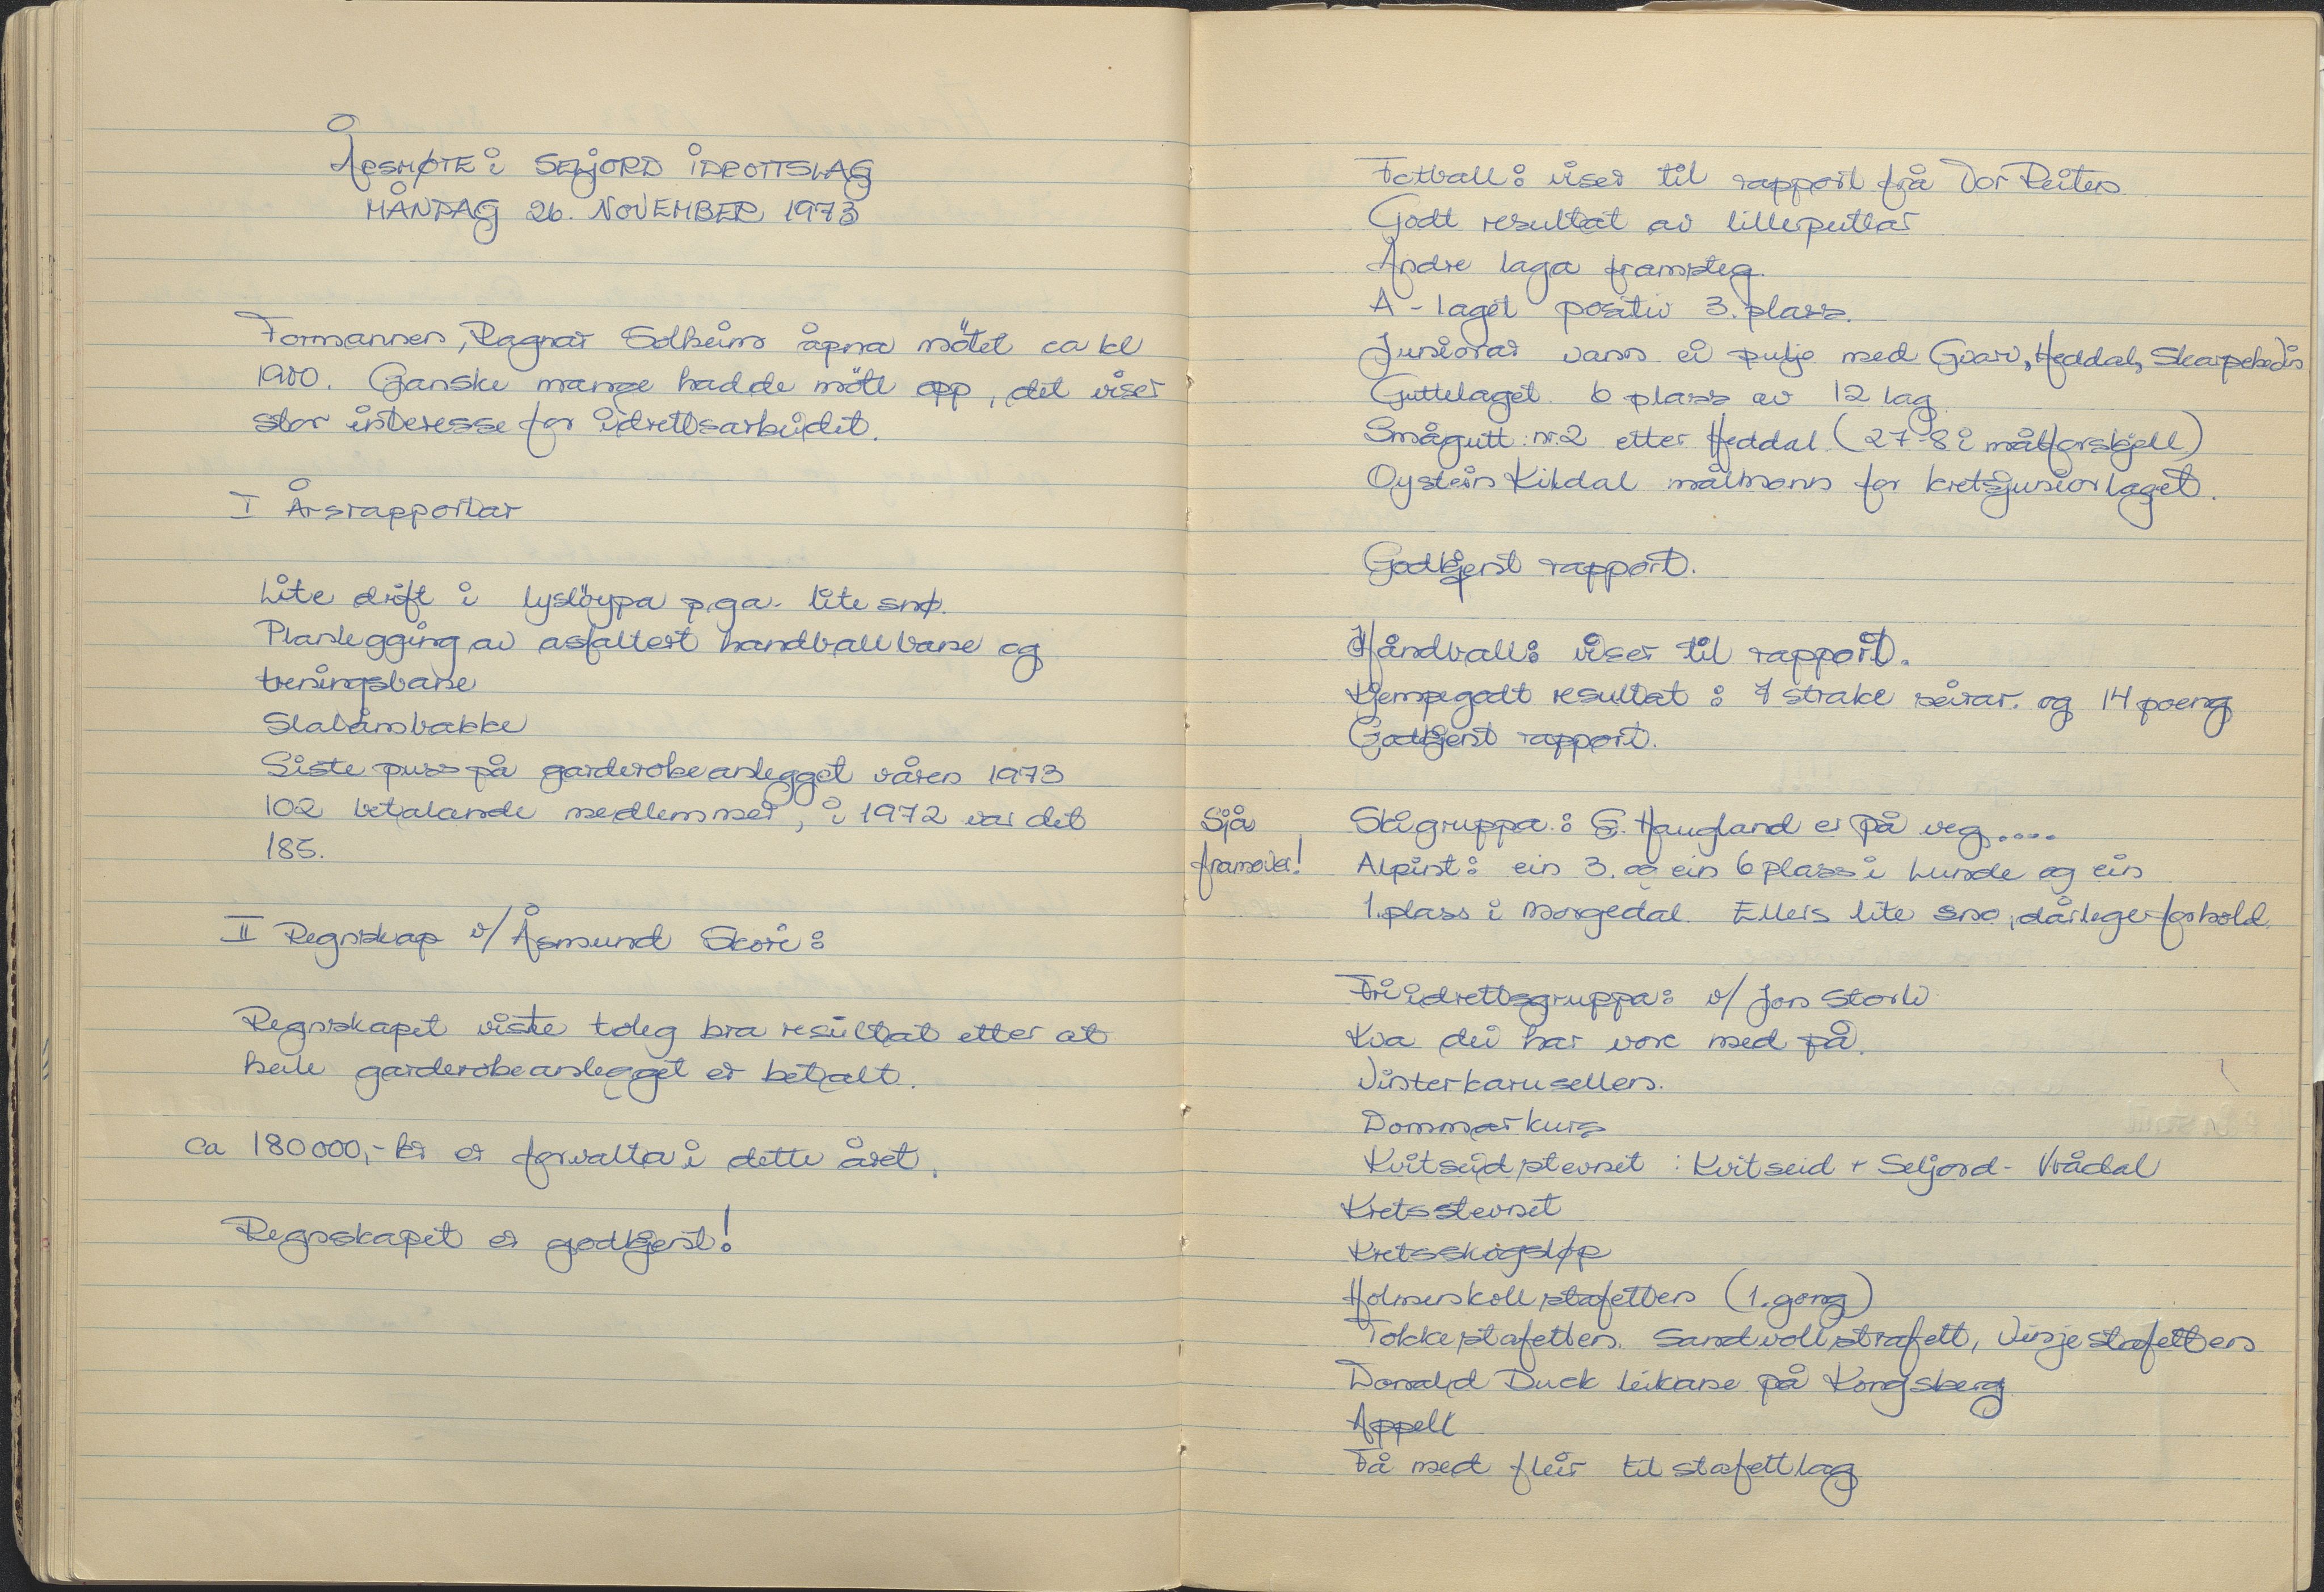 ÅRSMØTE i SELJORD IDROTTSLAG
MÅNDAG 26. NOVEMBER 1973
Formannen, Ragnar Solheim åpna mötet ca kl
1900. Ganske mange hadde mött opp, det viser
stor interesse for idrettsarbeidet.
I Årsrapportar
Lite drift i lyslöypa p.ga. lite snø.
Planlegging av asfaltert handballbane og
treningsbane
Slalåmbakke
Siste puss på garderobeanlegget våren 1973
102 betalande medlemmer, i 1972 var det
185.
II Regnskap v/ Åsmund Skori:
Regnskapet viste toleg bra resultat etter at
heile garderobeanlegget er betalt.
ca 180 000,- kr er forvalta i dette året.
Regnskapet er godkjent!
Fotball: viser til rapport frå Tor Reiten
Godt resultat av lilleputtar
Andre laga framsteg.
A-laget positiv 3. plass.
Juniorar vann ei pulje med Gvarv, Heddal, Skarpehedin
Guttelaget 6 plass av 12 lag
Smågutt: nr. 2 etter Heddal (27-8 i målforskjell)
Oystein Kildal målmann for kretsjuniorlaget.
Godkjent rapport.
Håndball: viser til rapport.
Kjempegodt resultat: 7 strake seirar. og 14 poeng
Godkjent rapport.
Sjå
framover!
Skigruppa: G. Haugland er på veg....
Alpint: ein 3. og ein 6 plass i Lunde og ein
1. plass i Morgedal. Ellers lite snø, dårlege forhold.
Friidrettsgruppa: v/ Jon Storli
Kva dei har vore med på.
Vinterkarusellen.
Dommarkurs
Kvitseidstevnet: Kvitseid + Seljord - Vrådal
Kretsstevnet
Kretsskogsløp
Holmenkollstafetten (1. gong)
Tokkestafetten. Sandvollstrafett, Vinjestafetten
Donald Duck leikane på Kongsberg
Appell
Få med fleir til stafettlag